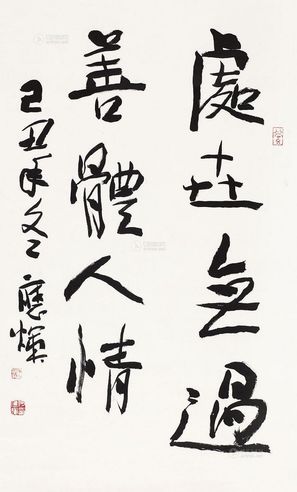 處世無過
善體人情
己丑年冬 應輝